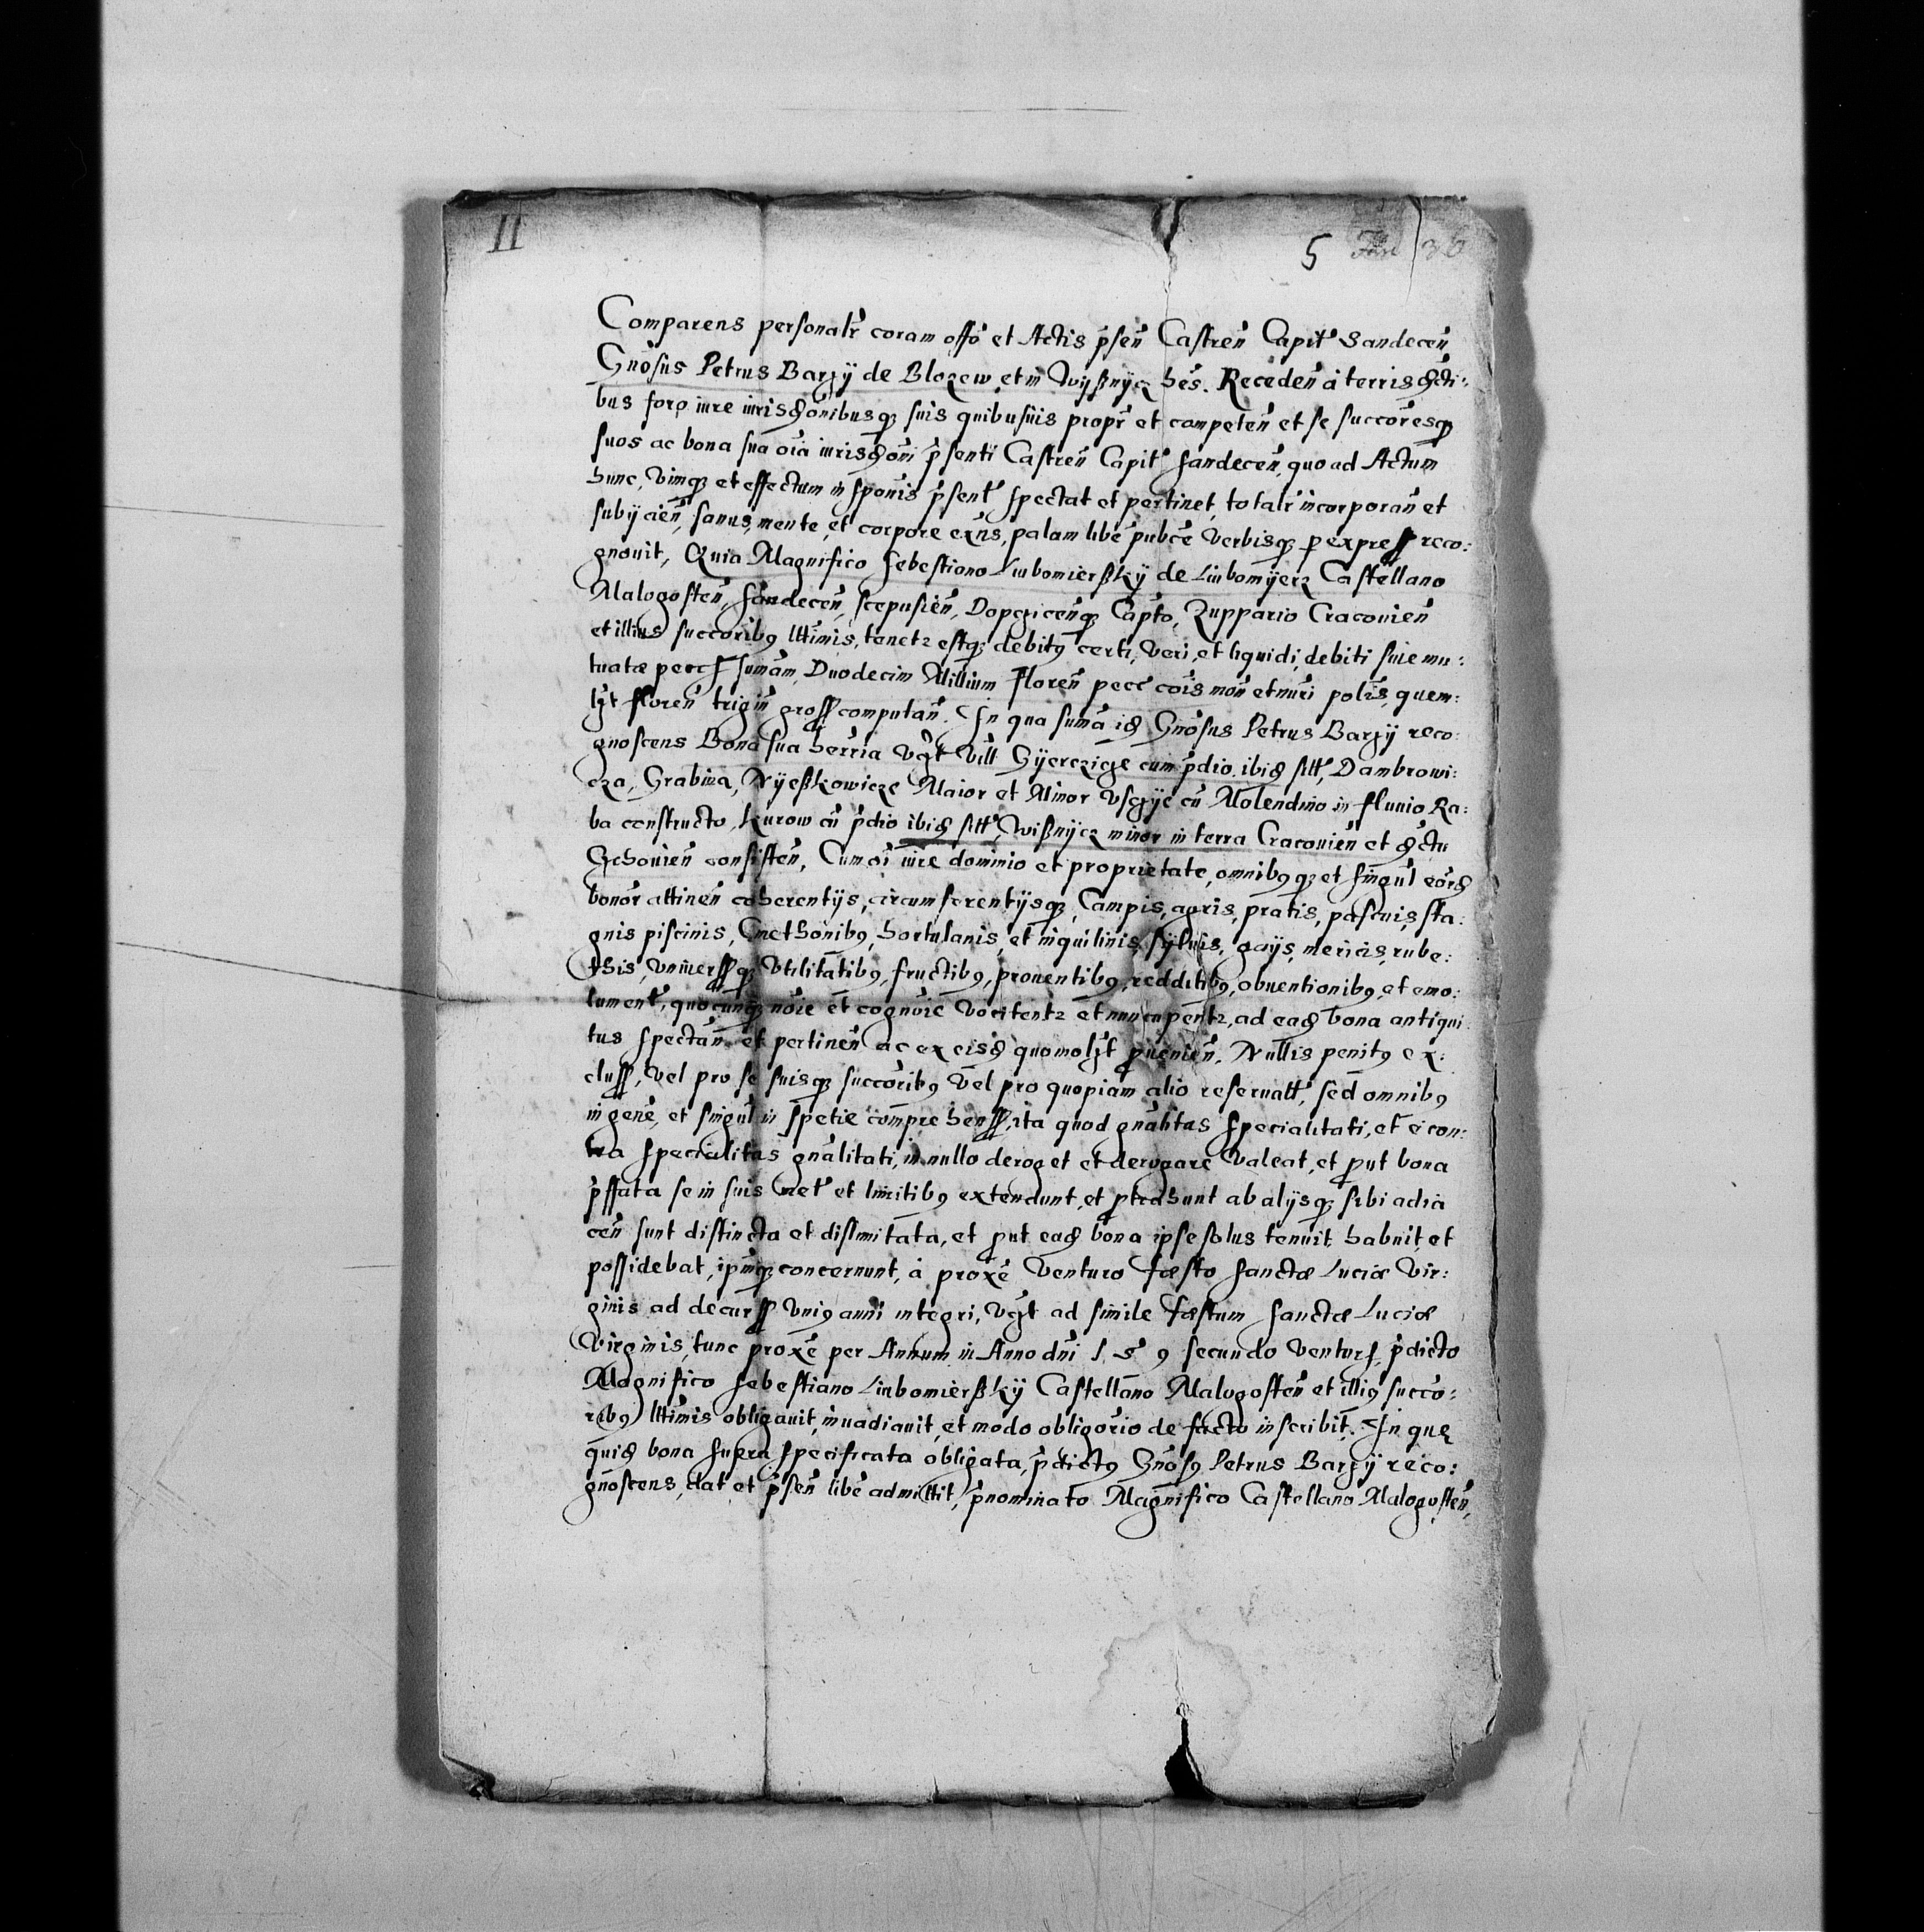 II
5
36
Comparens personalr coram offo et Actis psen Castren Capit Sandecen
Gnosus Petrus Barzy de Blozew et in Wyßnycz hes. Receden a terris dicti:
bus foro iure iurisdonibusq suis quibusuis propr et competen et se succoresq
suos ac bona sua oia iurisdoni psenti Castren Capit Sandecen, quo ad Actum
hunc, vimq et effectum insponis psent spectat et pertinet, totalr incorporan et
subycien, sanus mente et corpore exns, palam libe pubce verbisq p express reco:
gnouit, Quia Magnifico Sebestiano Liubomierßky de Liubomyerz Castellano
Malogosten, Sandecen, Scepusien, Dopczicenq Capto, Zuppario Cracouien
et illius succoribg lttimis, tenetz estq debitg certi, veri, et liquidi, debiti siue mu:
tuatæ pecc sumam, Duodecim Millium floren pece cois mon et nuri polis, quem:
lzt floren trigin gross computan. In qua suma id Gnosus Petrus Barzy reco:
gnoscens Bona sua herria vzt vill Gyerczicze cum pdio ibid sitt, Dambrowi:
cza, Grabina, Nyeßkowicze Maior et Minor Vsczye cu Molendino in fluuio Ra:
ba constructo, Kurow cu pdio ibid sitt, Wißnycz minor in terra Cracouien et dctu
Szchouien consisten, Cum oi iure dominio et proprietate, omnibg q et singul eord
bonor attinen coherentys, circumferentysq, Campis, agris, pratis, pascuis, sta:
gnis piscinis, Cmethonibg, hortulanis, et inquilinis, syluis, gays, mericis, rube:
this, vniuerssq vtilitatibg, fructibg, prouentibg, redditibg, obuentionibg, et emo:
lument, quocunq noie et cognoie vocitentz et nuncupentz, ad ead bona antiqui
tus spectan et pertinen ac ex eisd quomolzt puenien. Nullis penitg ex:
cluss, vel pro se suisq succoribg vel pro quopiam alio reseruatt, sed omnibg
in gene, et singul in spetie comprehenss, ita quod gnalitas specialitati, et e con:
tra specialitas gnalitati, in nullo deroget et derogare valeat, et put bona
pffata se in suis met et limitibg extendunt, et ptrahunt ab alysq sibi adia
cen sunt distincta et dislimitata, et put ead bona ipse solus tenuit habuit et
possidebat, ipmq concernunt, a proxe venturo fæsto Sanctæ Luciæ Vir:
ginis ad decurss vnig anni integri, vzt ad simile fæstum Sanctæ Luciæ
Virginis, tunc proxe per Annum in Anno dni 1 5 9 secundo ventur, pdicto
Magnifico Sebestiano Liubomierßky Castellano Malogosten et illig succo:
ribg lttimis obligauit, inuadiauit, et modo obligorio de facto inscribit. In quæ
quid bona supra specificata obligata, pdictg Gnosg Petrus Barzy reco:
gnoscens, dat et psen libe admittit, pnominato Magnifico Castellano Malogosten,